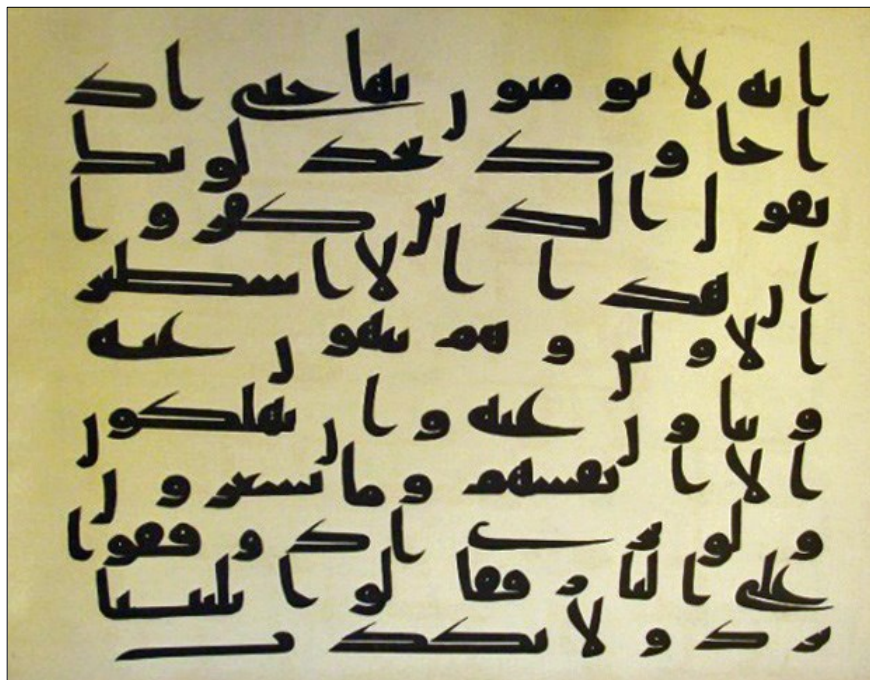 ايه لا يومنون بها حتى اذ
ا جاوك يجدلونك
يقول الذين كفروا
ان هذا الا اسطير
الاولين وهم ينهون عنه
ويناون عنه وان يهلكون
الا انفسهم وما يشعرون
ولو ترى اذ وقفوا
على النار فقالوا يليتنا
نرد ولا نكذب